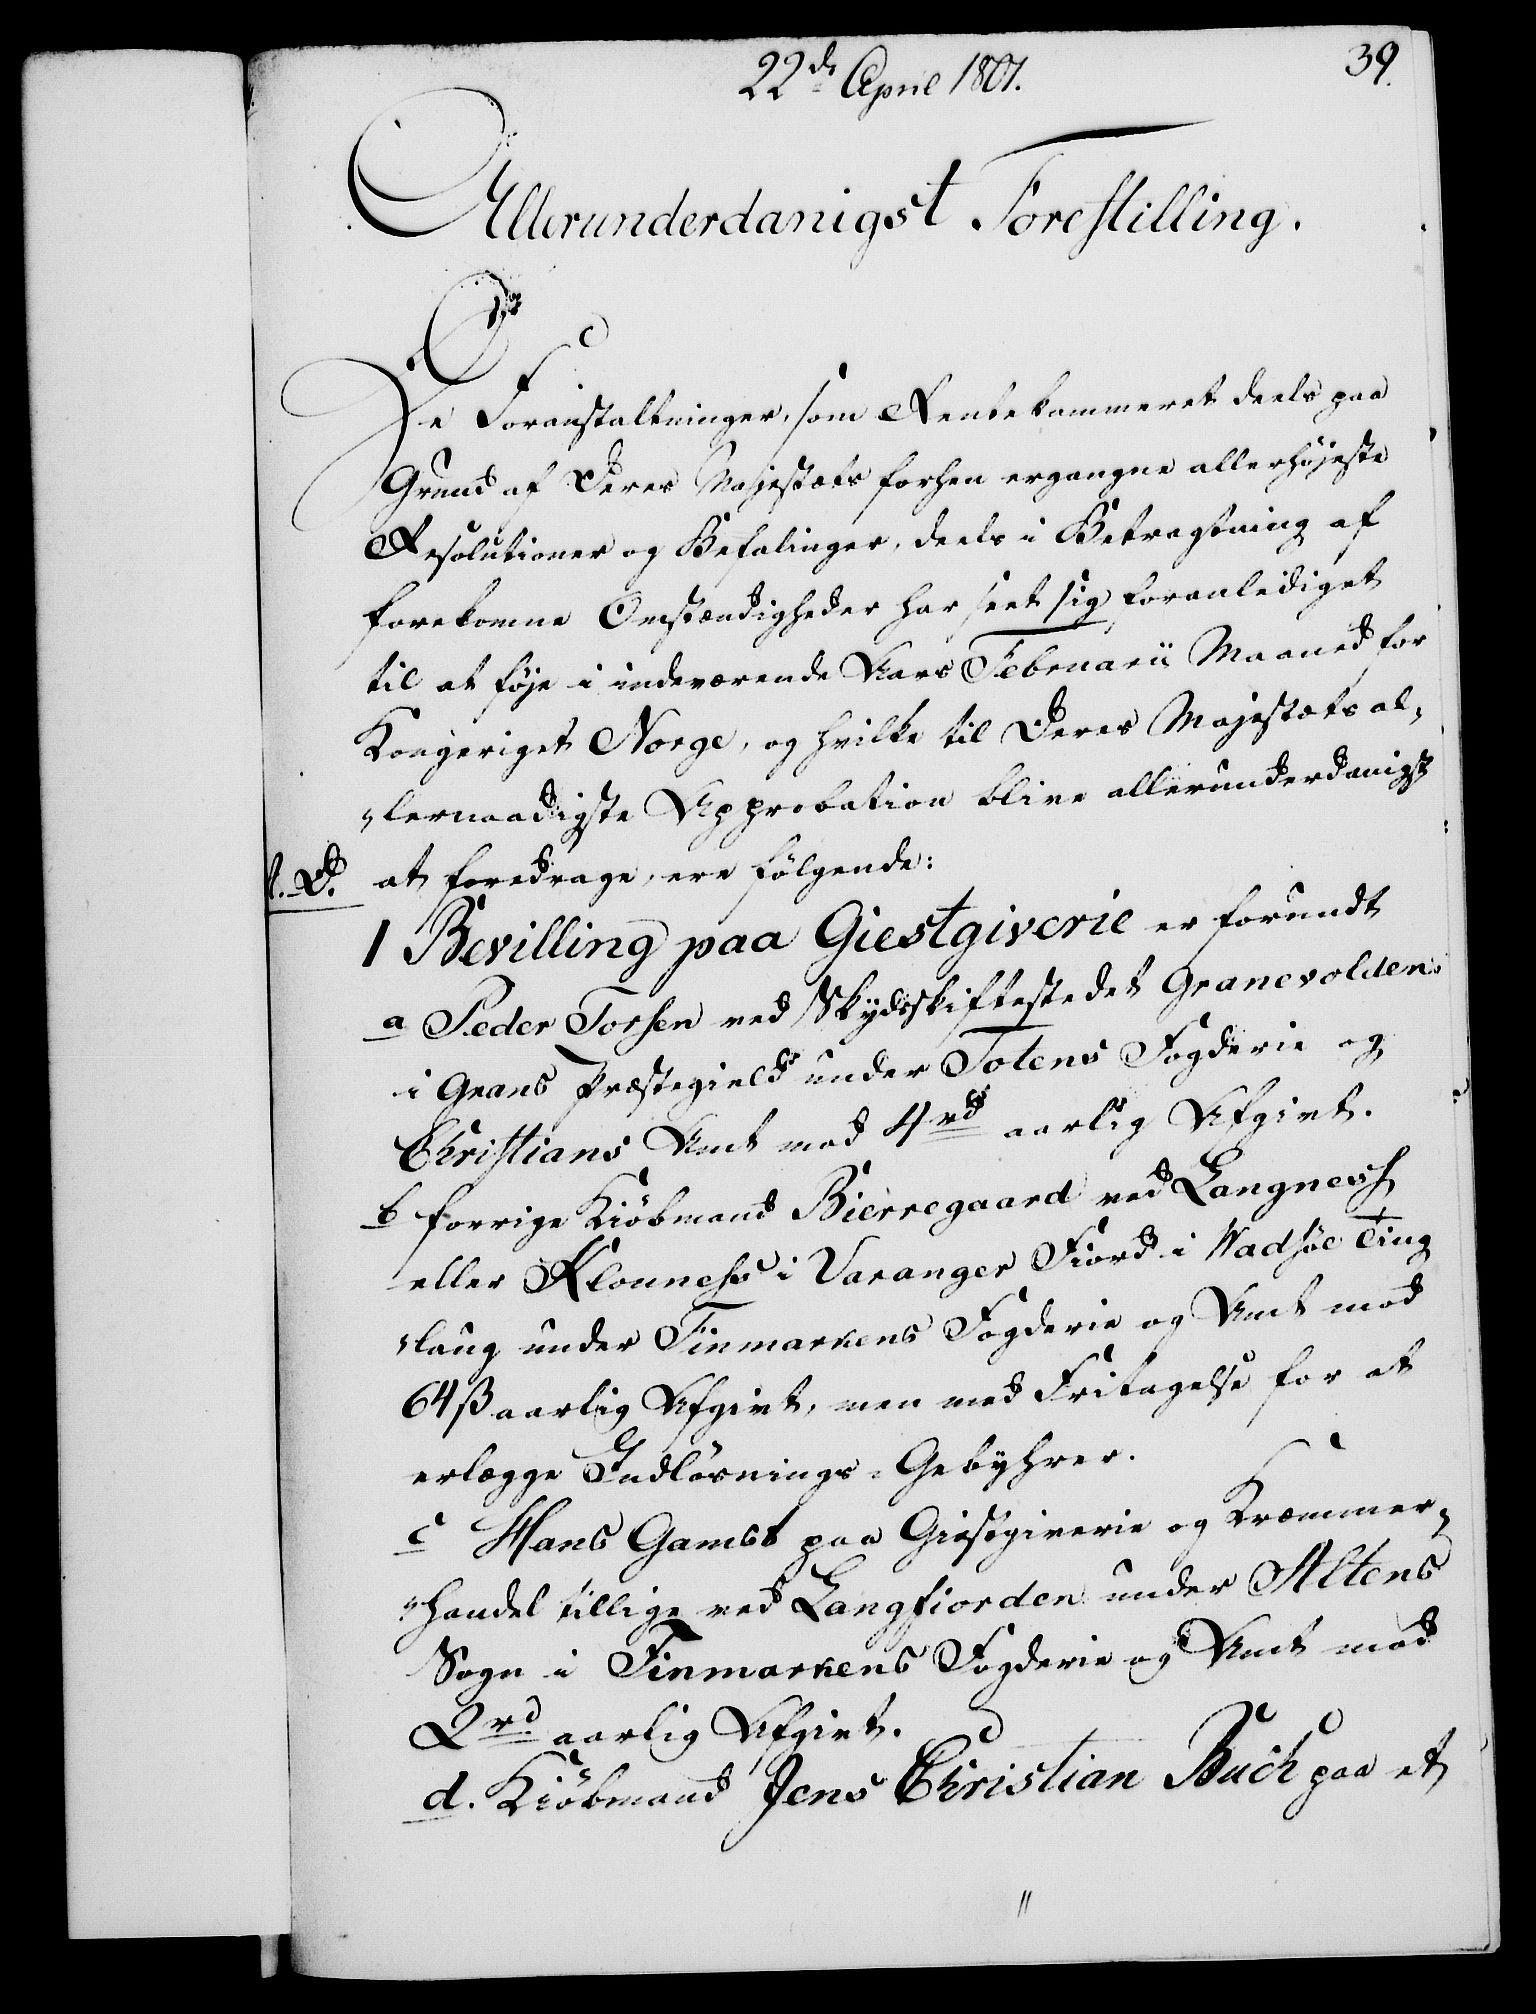 22de April 1801.
39.
Allerunderdanigst Forestilling.
De Foranstaltninger, som Rentekammeret deels paa
Grund af Deres Majestæts forhen ergangne allerhøjeste
Resolutioner og Befalinger, deels i Betragtning af
forekomne Omstændigheder har seet sig foranlediget
til at føje i indeværende Aars Februarii Maaned for
Kongeriget Norge, og hvilke til Deres Majestæts al-
lernaadigste Approbation blive allerunderdanigst
at foredrage, ere følgende:
1 Bevilling paa Giestgiverie er forundt
a Peder Torsen ved Skydsskiftestedet Granevolden
i Grans Præstegield under Totens Fogderie og
Christians Amt mod 4 rd aarlig Afgivt.
b forrige Kiöbmand Bierregaard ved Langness
eller Klonness i Varanger Fiord i Wadsöe Ting
laug under Finmarkens Fogderie og Amt mod
64 ß aarlig Afgivt, men med Fritagelse for at
erlægge Indløsnings-Gebyhrer.
c Hans Gamst paa Giestgiverie og Kræmmer-
handel tillige ved Langfiorden under Altens
Sogn i Finmarkens Fogderie og Amt mod
2 rd aarlig Afgivt.
d. Kiöbmand Jens Christian Buch paa et